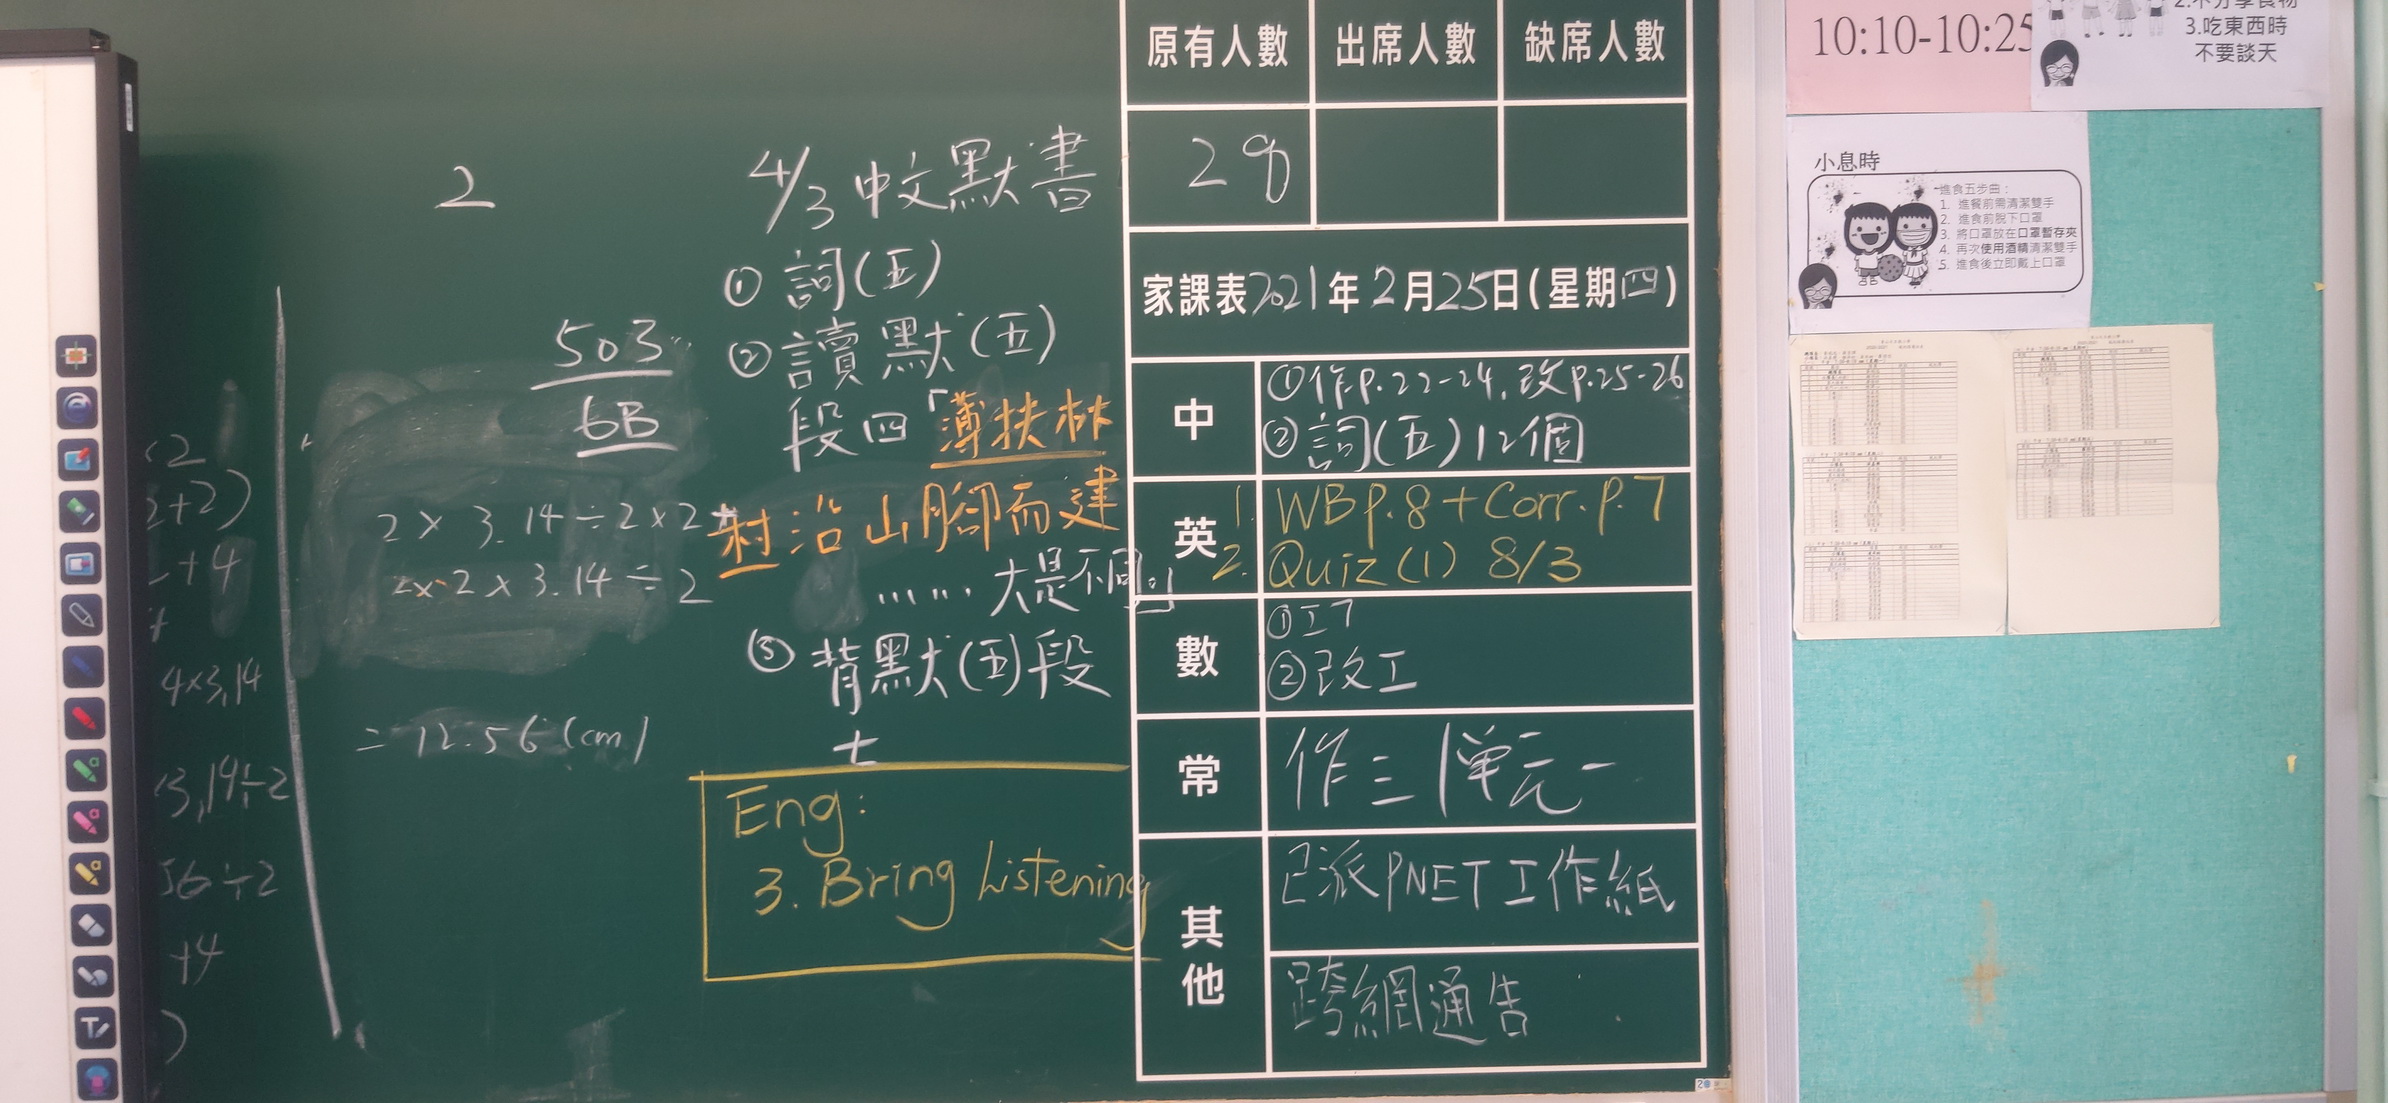 2
503
6B
2 × 3.14 ÷ 2 × 2
2 × 2 × 3.14 ÷ 2
= 12.56 (cm)
2+2)
+4
4×3.14
3.14÷2
56÷2
+4
)
4/3 中文默書
① 詞(五)
② 讀默(五)
段四「薄扶林
村沿山腳而建
…… 大是不同」
③ 背默(五)段
七
Eng:
3. Bring Listening
原有人數 出席人數 缺席人數
28
家課表2021年2月25日(星期四)
中 ①作P.22-24, 改P.25-26
②詞(五)12個
英 1. WB p.8 + Corr. p.7
2. Quiz (1) 8/3
數 ①工7
②改工
常 作三 單元一
其他 已派PNET工作紙
跨網通告
10:10-10:25
3.吃東西時
不要談天
小息時
進食五步曲：
1. 進餐前需清潔雙手
2. 進食前脫下口罩
3. 將口罩放在口罩暫存夾
4. 再次使用酒精清潔雙手
5. 進食後立即戴上口罩